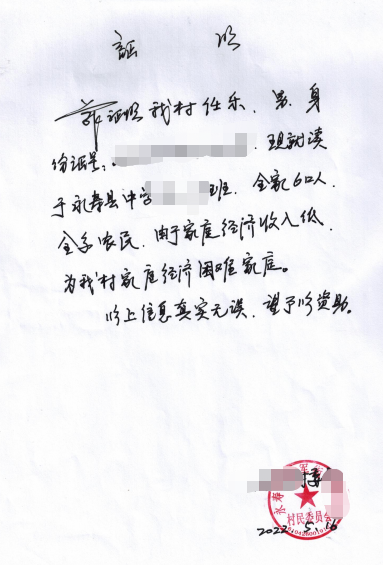 证 明
兹证明我村任乐、男、身
份证号: 现就读
于永寿县中学 班,全家6口人
全系农民,由于家庭经济收入低,
为我村家庭经济困难家庭。
以上信息真实无误,望予以资助。
永寿
村民委员会
2022.5.16